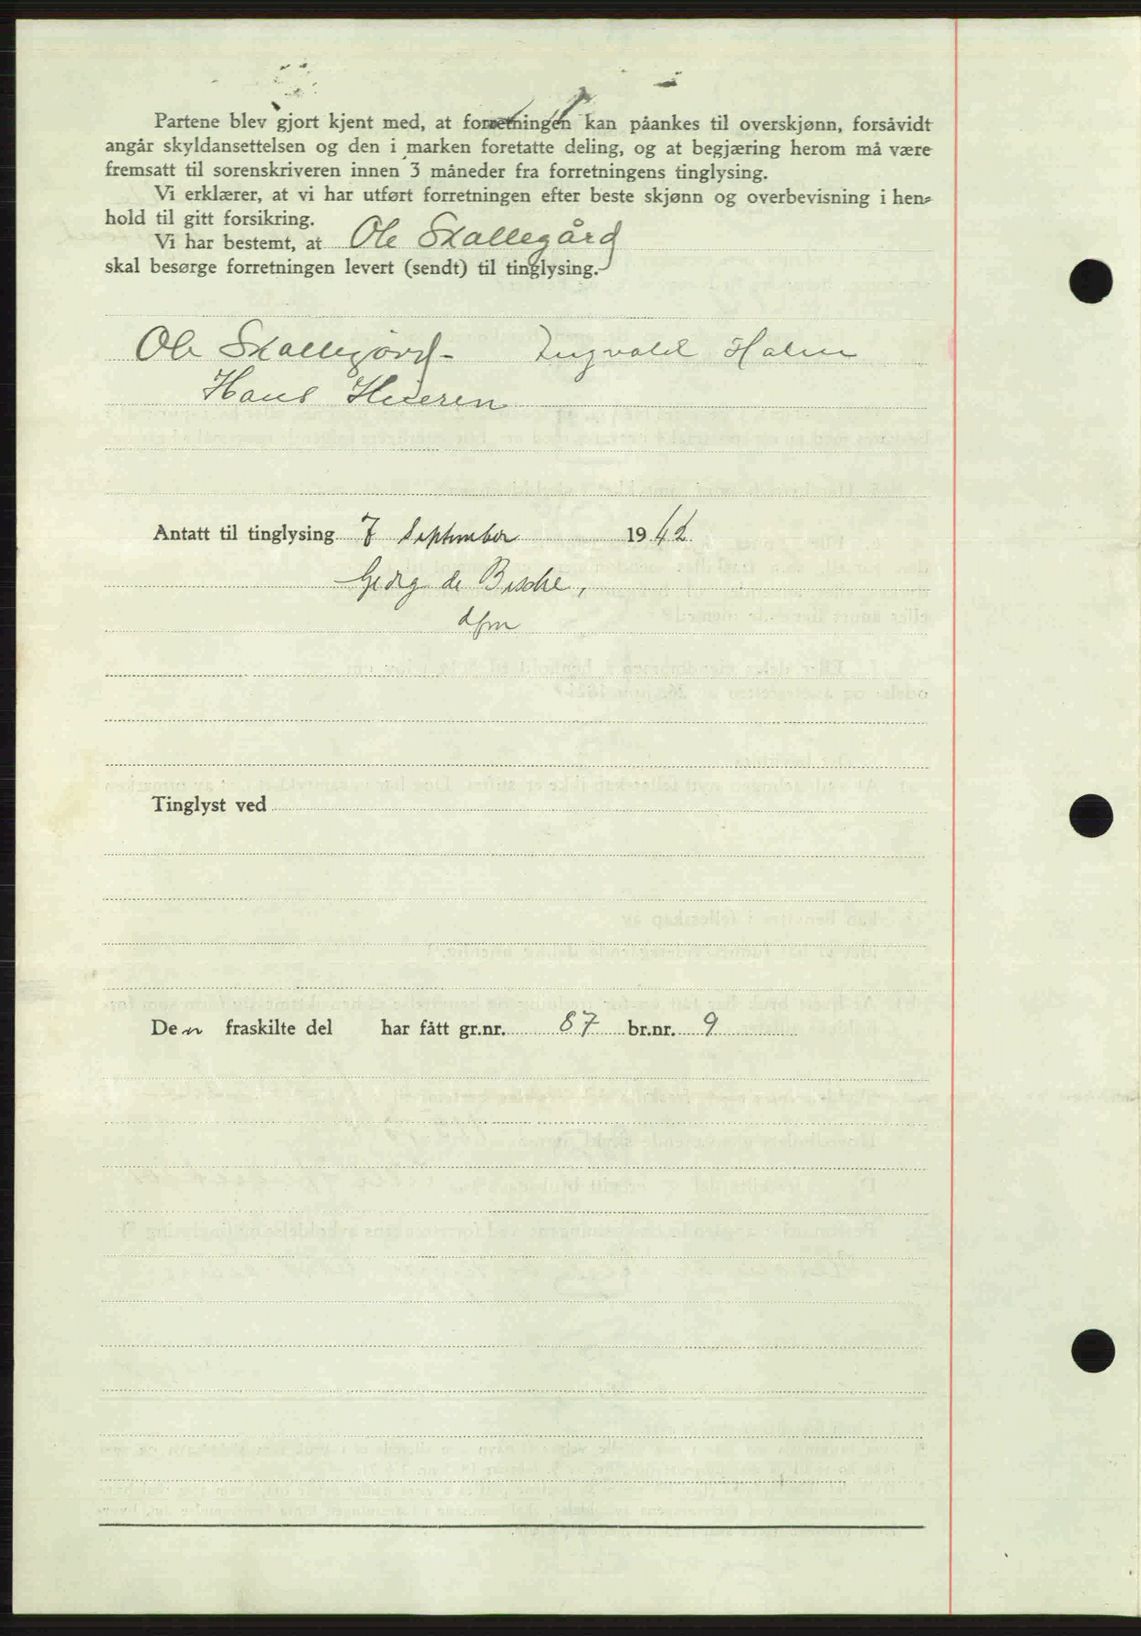 Partene blev gjort kjent med, at forretningen kan påankes til overskjønn, forsåvidt
angår skyldansettelsen og den i marken foretatte deling, og at begjæring herom må være
fremsatt til sorenskriveren innen 3 måneder fra forretningens tinglysing.
Vi erklærer, at vi har utført forretningen efter beste skjønn og overbevisning i hen-
hold til gitt forsikring.
Vi har bestemt, at Ole Skallegård
skal besørge forretningen levert (sendt) til tinglysing.
Ole Skallegård Ingvald Holm
Hans
Antatt til tinglysing 7 September 1942
Georg de Besche,
dfm
Tinglyst ved
Den fraskilte del har fått gr.nr. 87 br.nr. 9